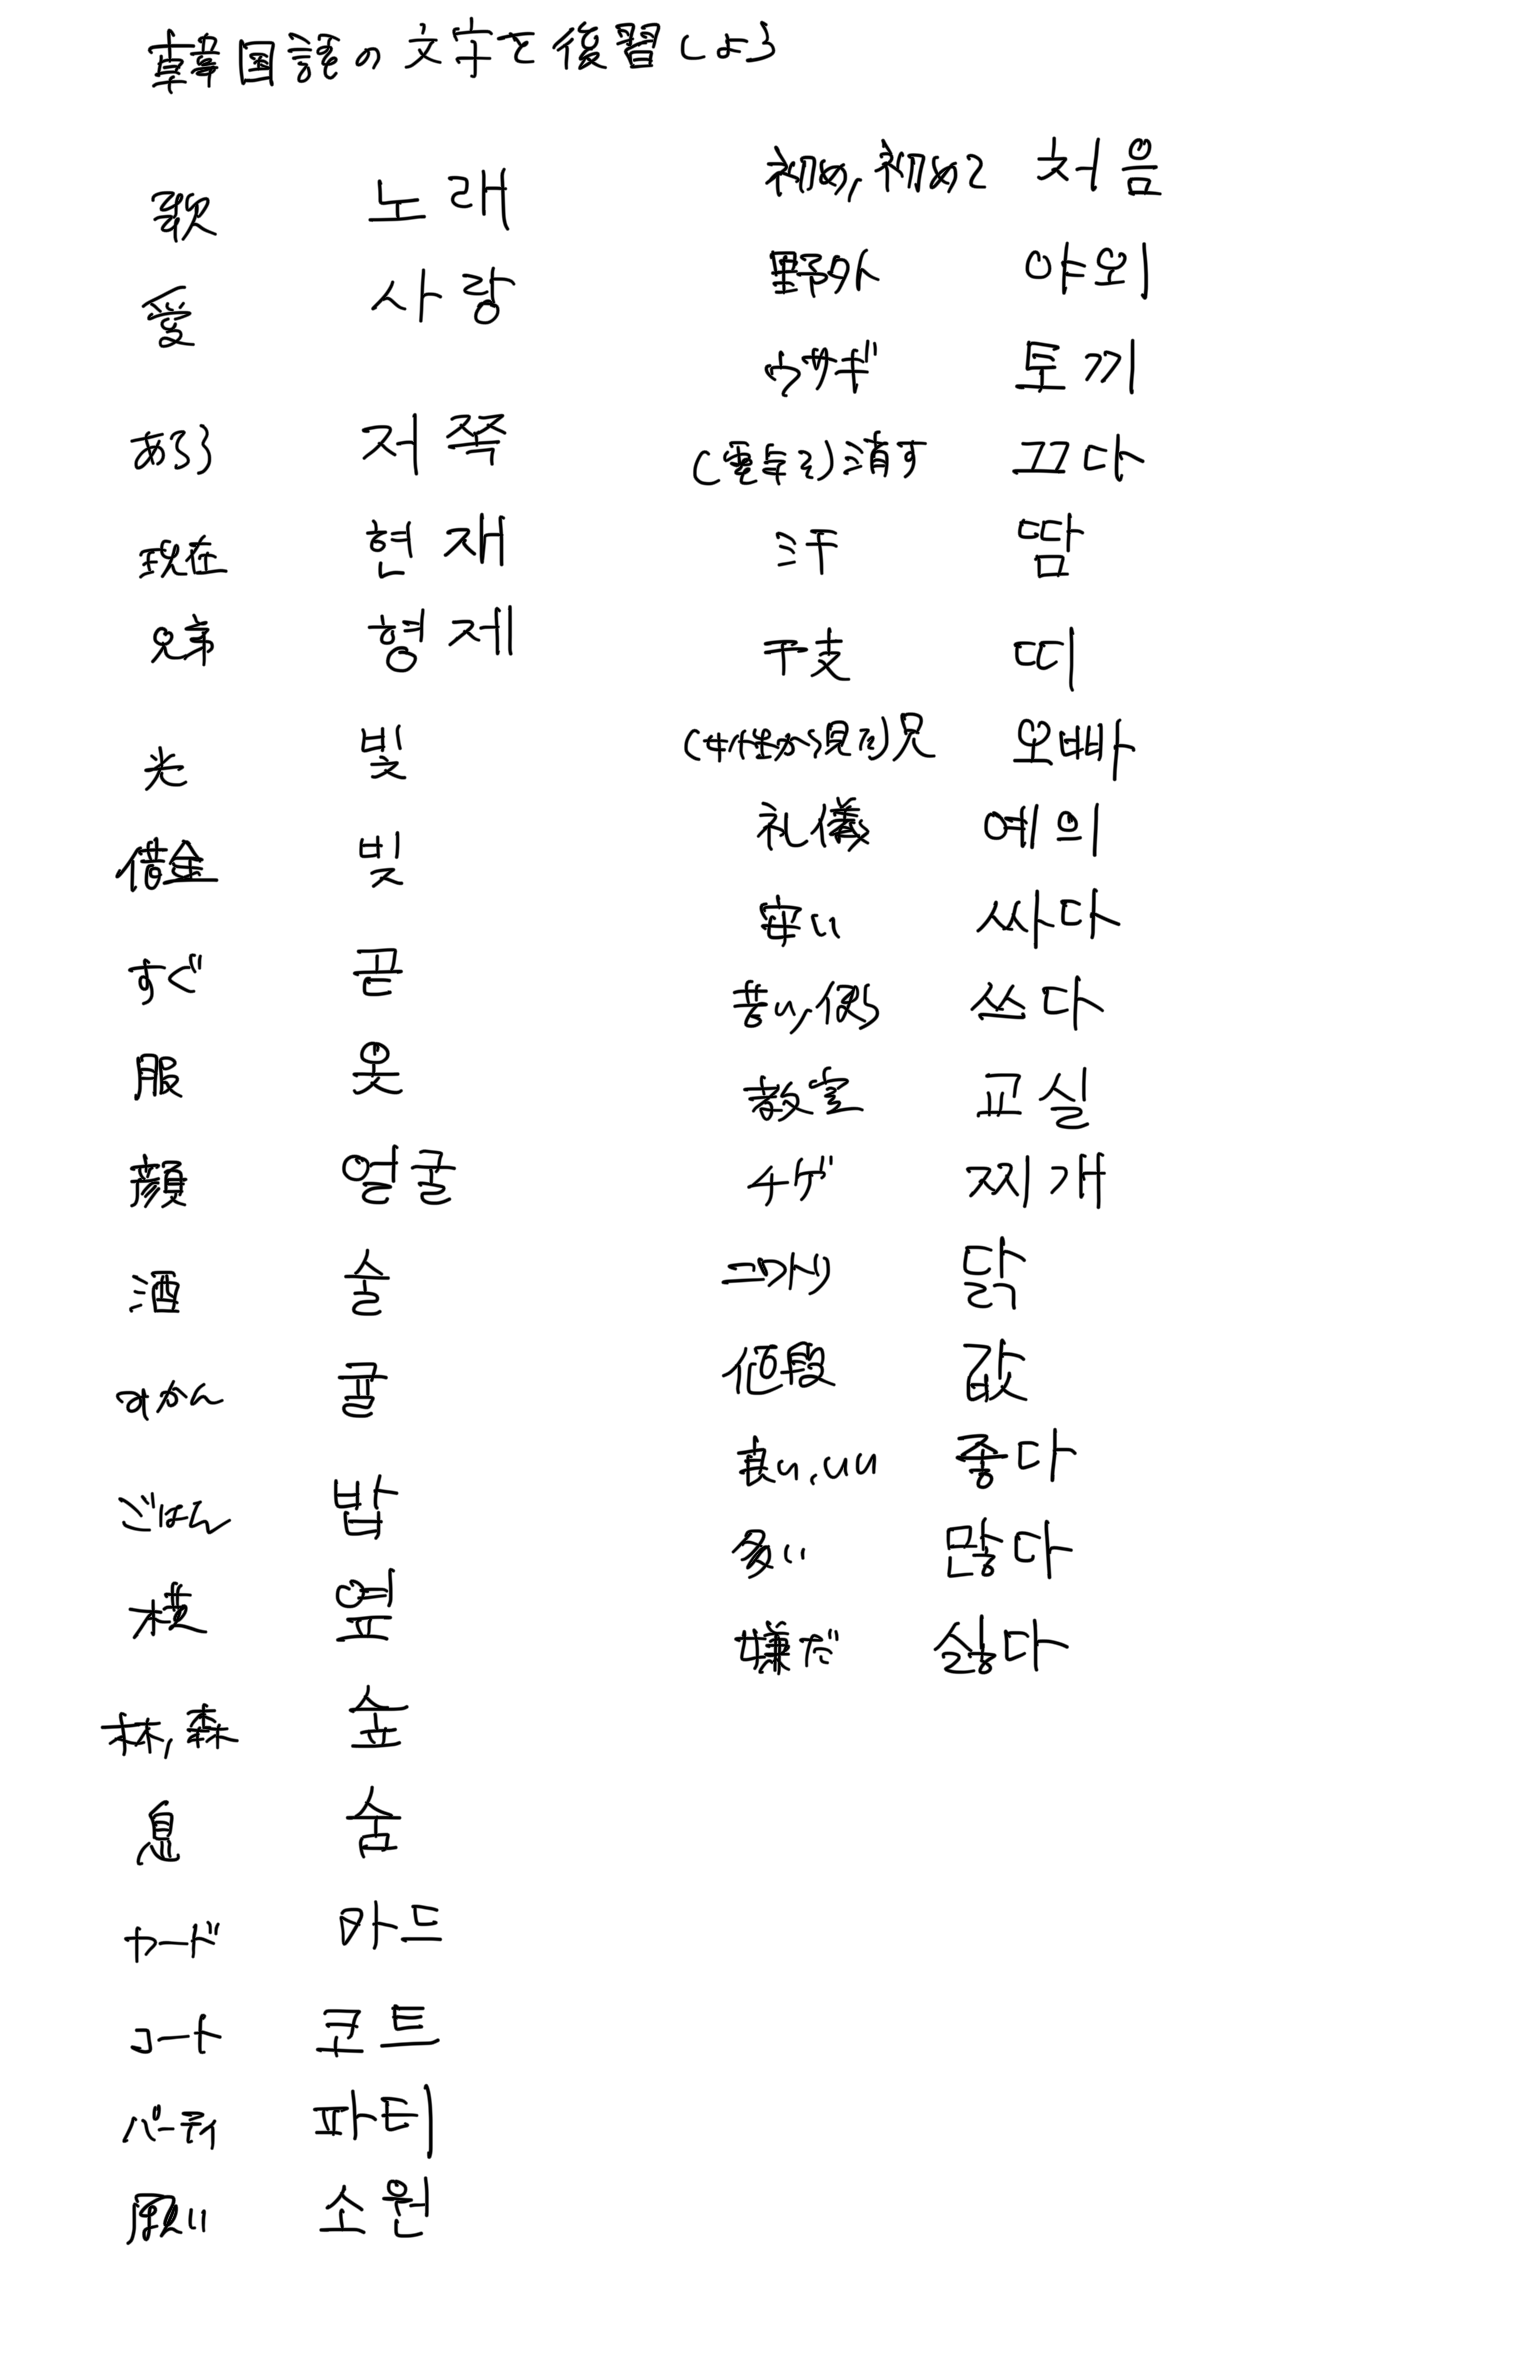 韓国語の文字を復習しよう
歌 노래
愛 사랑
あちら 저쪽
現在 현재
兄弟 형제
光 빛
借金 빚
すぐ 곧
服 옷
顔 얼굴
酒 술
みかん 귤
ごはん 밥
横 옆
林,森 숲
息 숨
カード 카드
コート 코트
パーティ 파티
願い 소원
初め,初めて 처음
野外 야외
ウサギ 토끼
(電気を)消す 끄다
汗 땀
干支 띠
(女性から見て)兄 오빠
礼儀 예의
安い 싸다
苦い,使う 쓰다
教室 교실
チゲ 찌개
ニワトリ 닭
値段 값
良い,いい 좋다
多い 많다
嫌だ 싫다